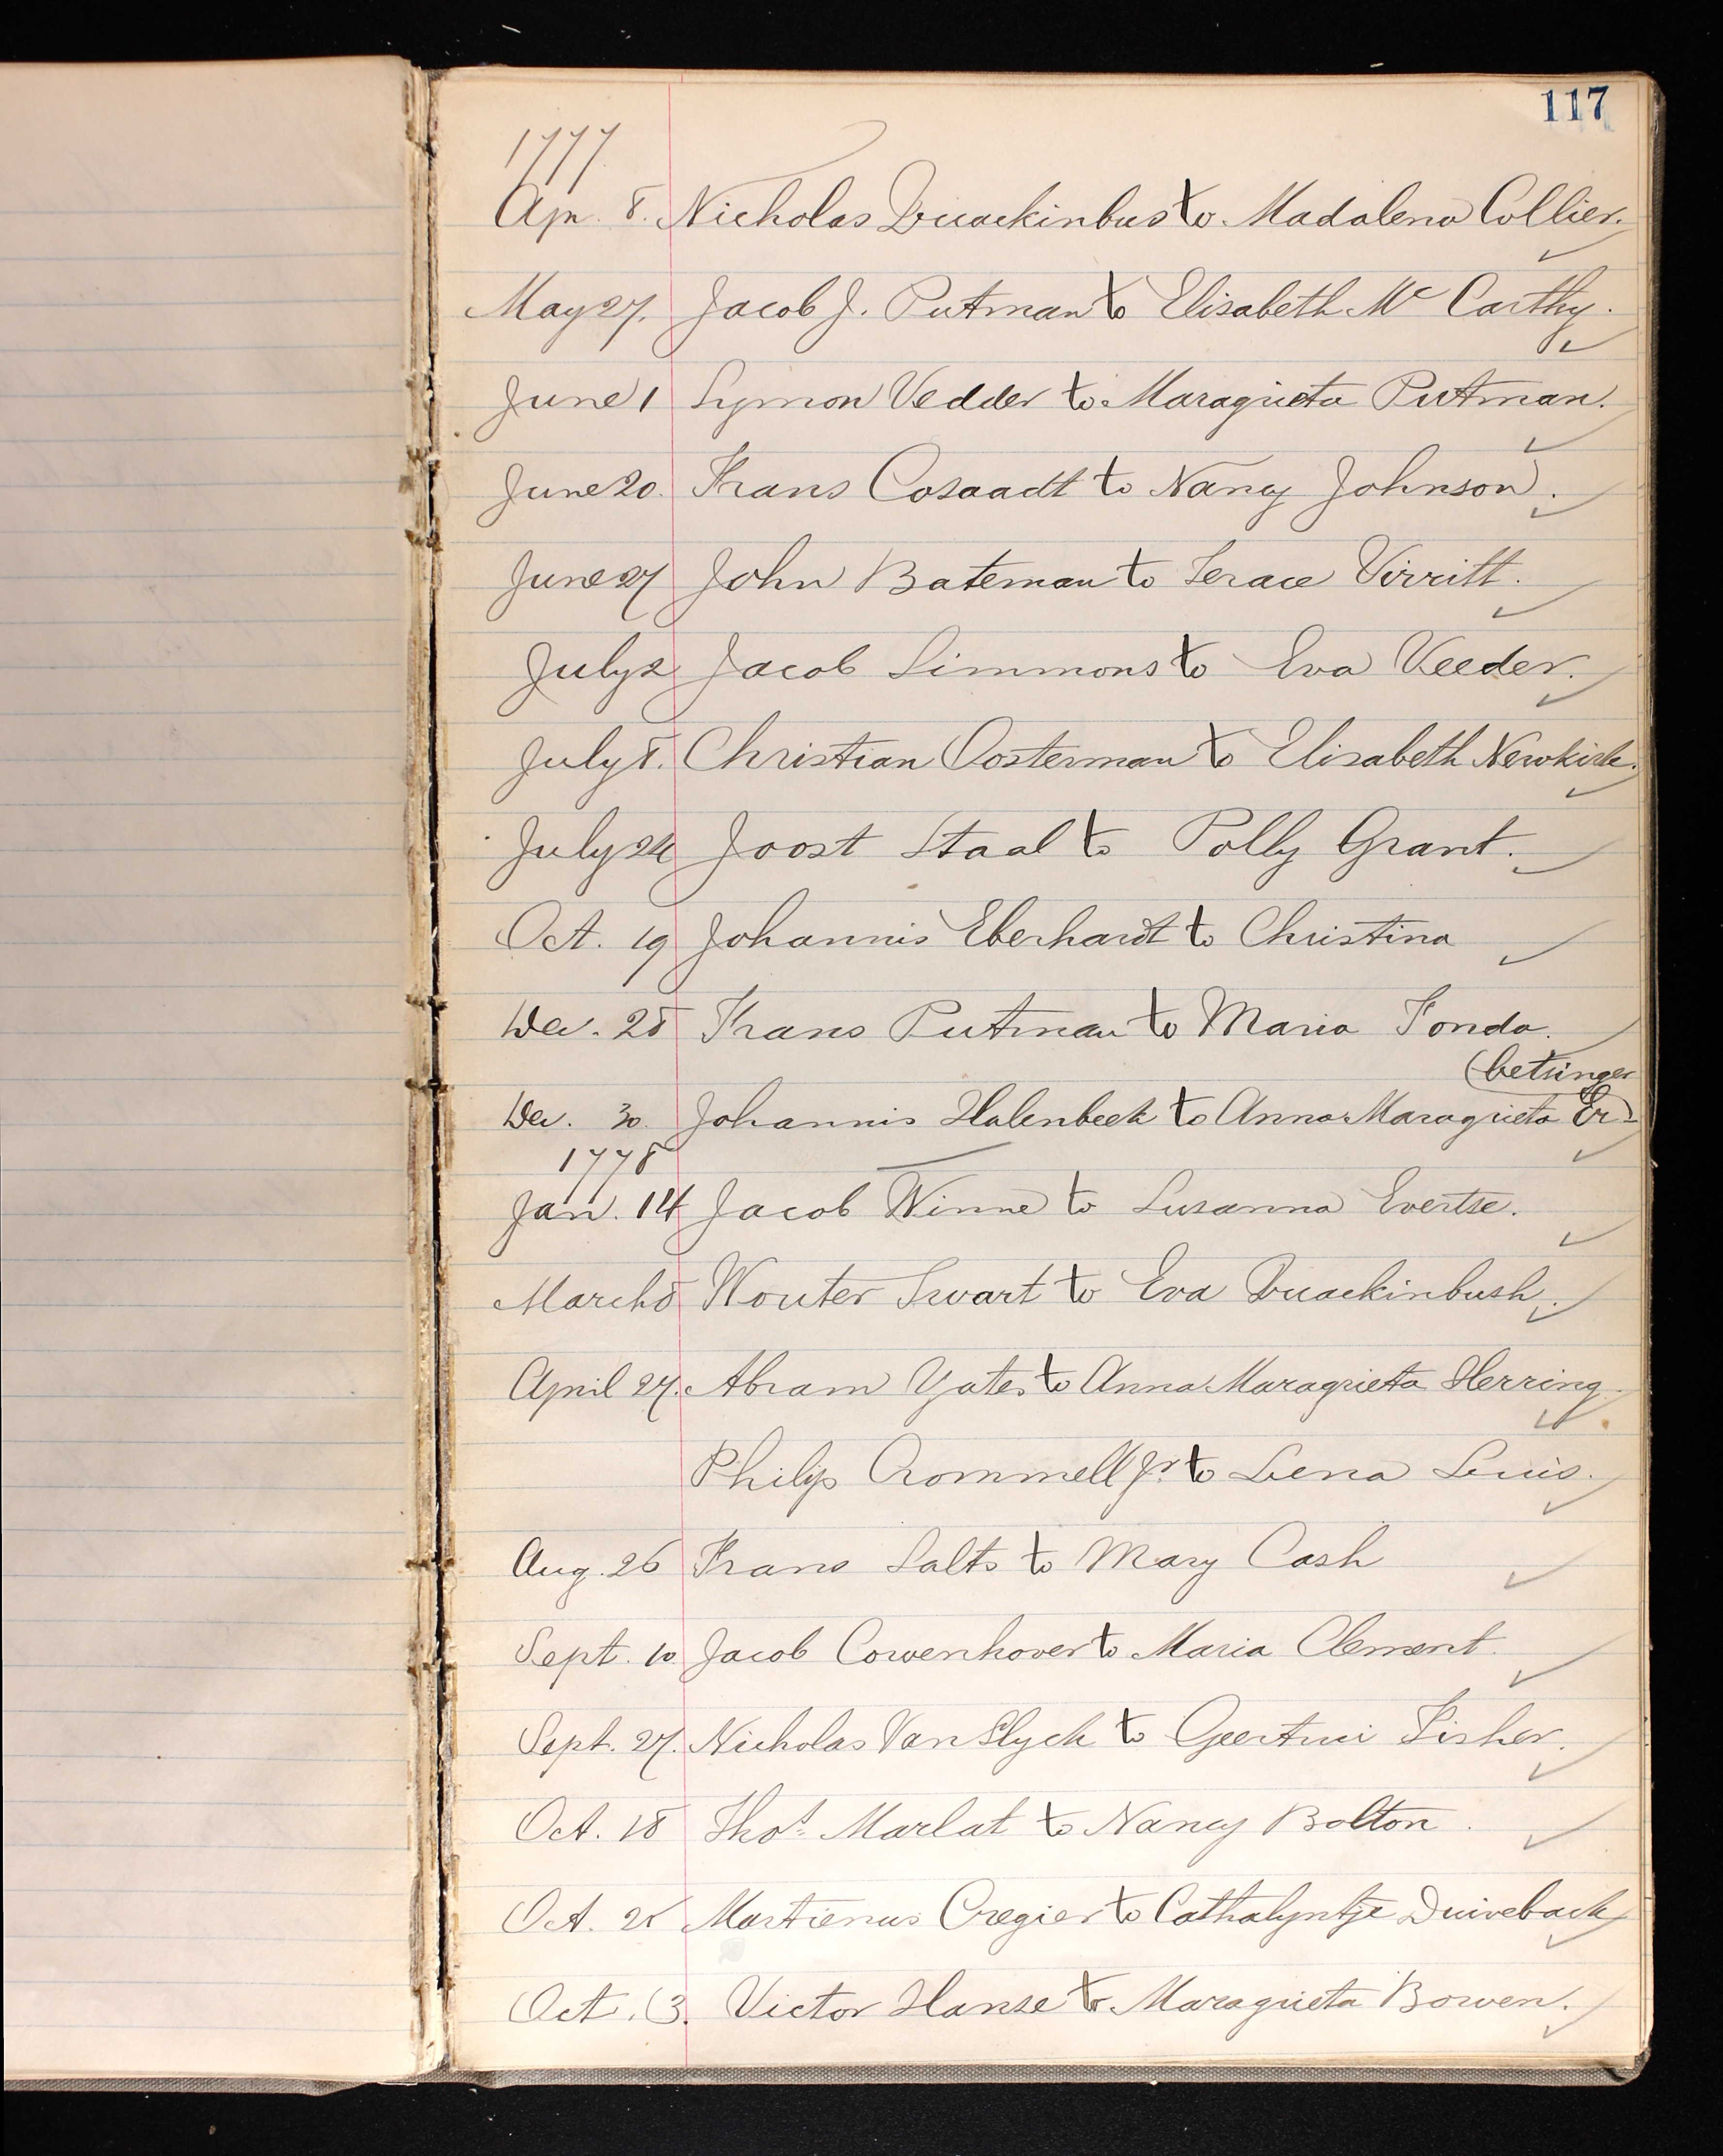 117
1777
Apr. 8. Nicholas Quackinbus to Madalena Collier.
May 27. Jacob J. Putman to Elisabeth Mc Carthy.
June 1 Symon Vedder to Maragrieta Putman.
June 20. Frans Cosaadt to Nancy Johnson.
June 27 John Bateman to Terace Virritt.
July 2 Jacob Simmons to Eva Veeder.
July 8. Christian Oosterman to Elisabeth Newkirk.
July 24 Joost Staal to Polly Grant.
Oct. 19 Johannis Eberhardt to Christina
Dec. 28 Frans Putman to Maria Fonda.
(betsinger
Dec. 30. Johannis Halenbeek to Anna Maragrieta Er-
1778
Jan. 14 Jacob Winne to Susanna Evertse.
March 8 Wouter Swart to Eva Quackinbush.
April 27. Abram Yates to Anna Maragrieta Herring.
Philip Crommell Jr. to Lena Lewis.
Aug. 26 Frans Salts to Mary Cash
Sept. 10 Jacob Cowenhover to Maria Clement.
Sept. 27. Nicholas Van Slyck to Geertrui Fisher.
Oct. 18 Thos. Marlat to Nancy Bolton.
Oct. Martienus Cregier to Cathalyntje Duiveback
Oct. 13. Victor Hanse to Maragrieta Bowen.